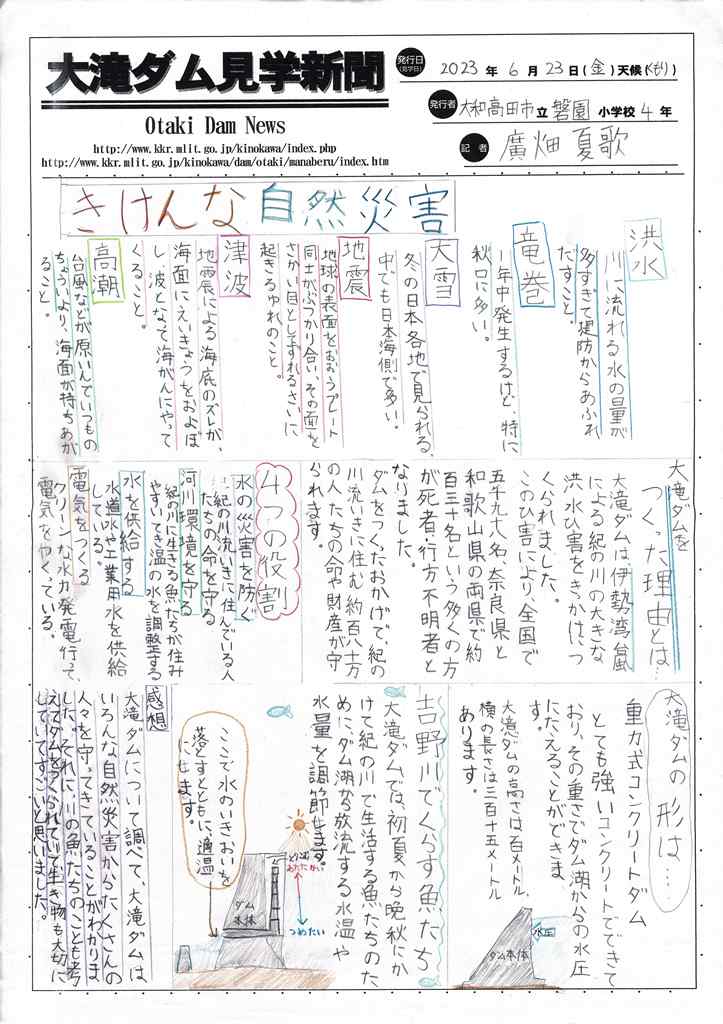 大滝ダム見学新聞
Otaki Dam News
http://www.kkr.mlit.go.jp/kinokawa/index.php
http://www.kkr.mlit.go.jp/kinokawa/dam/otaki/manaberu/index.htm
発行日(見学日) 2023年6月23日(金)天候(くもり)
発行者 大和高田市立磐園小学校4年
記者 廣畑夏歌
きけんな自然災害
洪水
川に流れる水の量が
多すぎて堤防からあふれ
だすこと。
竜巻
1年中発生するけど、特に
秋口に多い。
大雪
冬の日本各地で見られる、
中でも日本海側で多い。
地震
地球の表面をおおうプレート
同士がぶつかり合い、その面を
さかい目としてずれるさいに
起きるゆれのこと。
津波
地震による海底のズレが、
海面にえいきょうをおよぼ
し、波となって海がんにやって
くること。
高潮
台風などが原いんでいつもの
ちょういより、海面が持ちあが
ること。
大滝ダムを
つくった理由とは…
大滝ダムは伊勢湾台風
による紀の川の大きな
洪水ひ害をきっかけにつ
くられました。
このひ害により全国で
五千九十八名、奈良県と
和歌山県の両県で約
百三十名という多くの方
が死者・行方不明者と
なりました。
ダムをつくったおかげで、紀の
川流いきに住む約百八十万
の人たちの命や財産が守
られます。
4つの役割
水の災害を防ぐ
…紀の川流いきに住んでいる人
たちの命を守る
河川環境を守る
紀の川に生きる魚たちが住み
やすいてき温の水を調整する
水を供給する
水道水や工業用水を供給
している。
電気をつくる
クリーンな水力発電行って、
電気をやくっている。
大滝ダムの形は…
重力式コンクリートダム
とても強いコンクリートでできて
おり、その重さでダム湖からの水圧
にたえることができま
す。
大滝ダムの高さは百メートル
横の長さは三百十五メートル
あります。
水圧
ダム本体
吉野川でくらす魚たち
大滝ダムでは、初夏から晩秋にか
けて紀の川で生活する魚たちのた
めに、ダム湖から放流する水温や
水量を調節します。
あたたかい
つめたい
ダム本体
ここで水のいきおいを
落とすとともに、適温
にします。
感想
大滝ダムについて調べて、大滝ダムは
いろんな自然災害からたくさんの
人々を守ってきていることがわかりま
した。それに、川の魚たちのことも考
えてダムをつくられていて生き物も大切に
していてすごいと思いました。